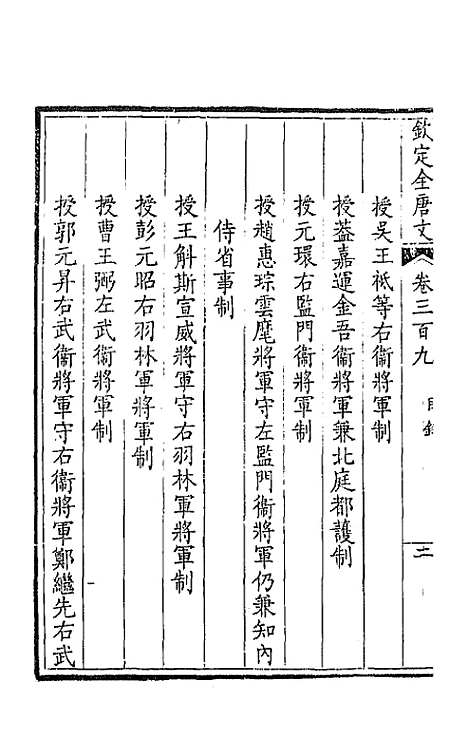 欽定全唐文 卷三百九 目錄 二
授吳王祗等右衞將軍制
授葢嘉運金吾衞將軍兼北庭都護制
授元環右監門衞將軍制
授趙惠琮雲麾將軍守左監門衞將軍仍兼知內
侍省事制
授王斛斯宣威將軍守右羽林軍將軍制
授彭元昭右羽林軍將軍制
授曹王弼左武衞將軍制
授郭元昇右武衞將軍守右衞將軍鄭繼先右武